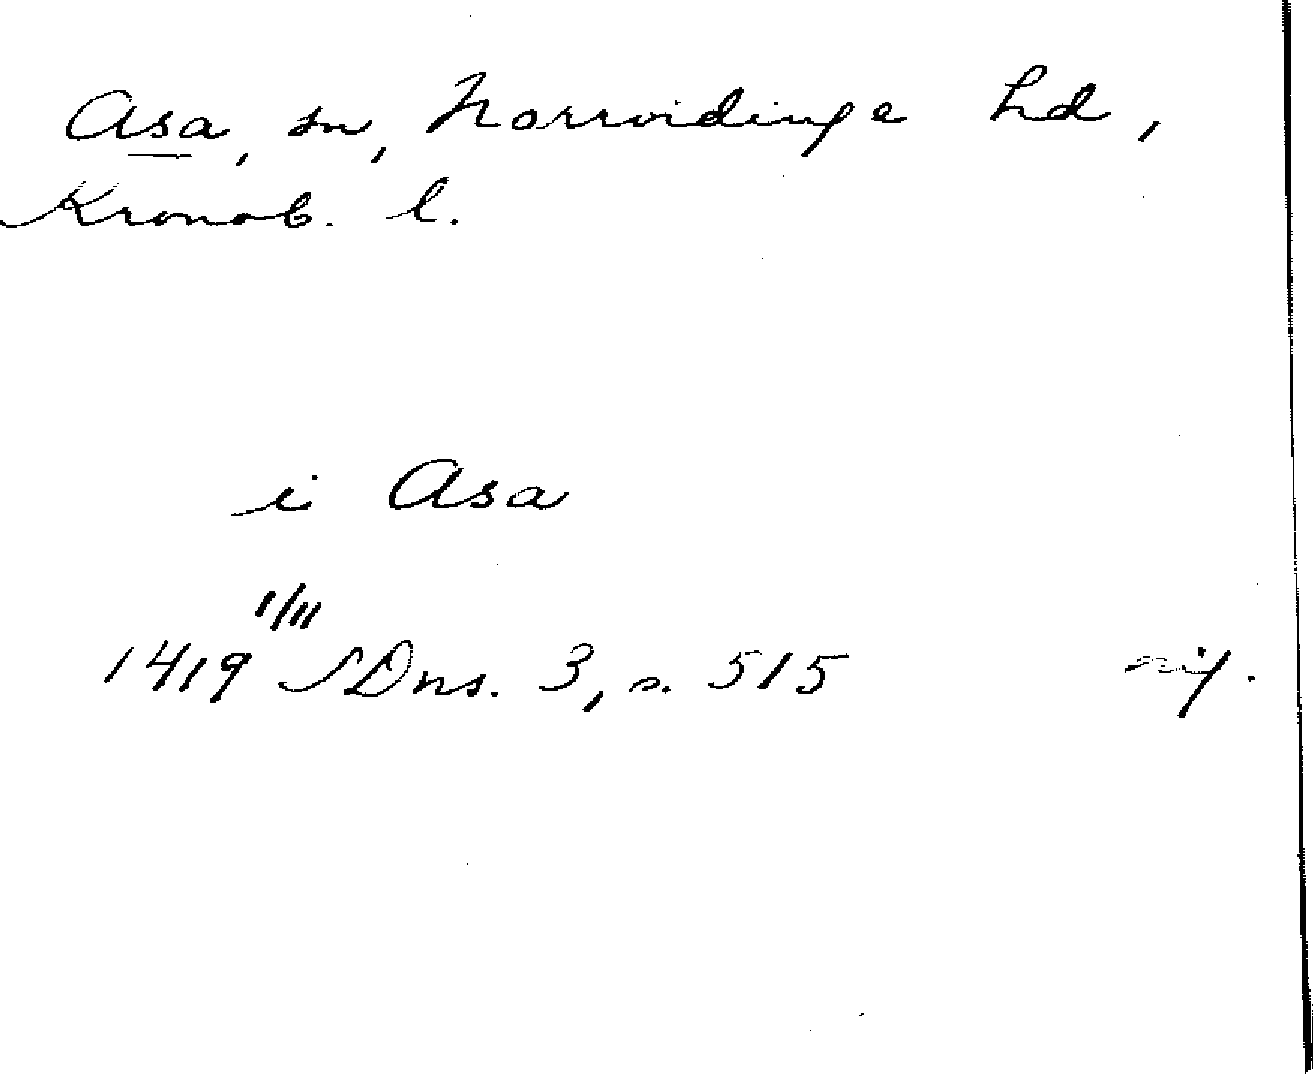 Asa, sn, Norrvidinge hd,
Kronob. l.
i Asa
1/11
1419 SDns. 3, s. 515